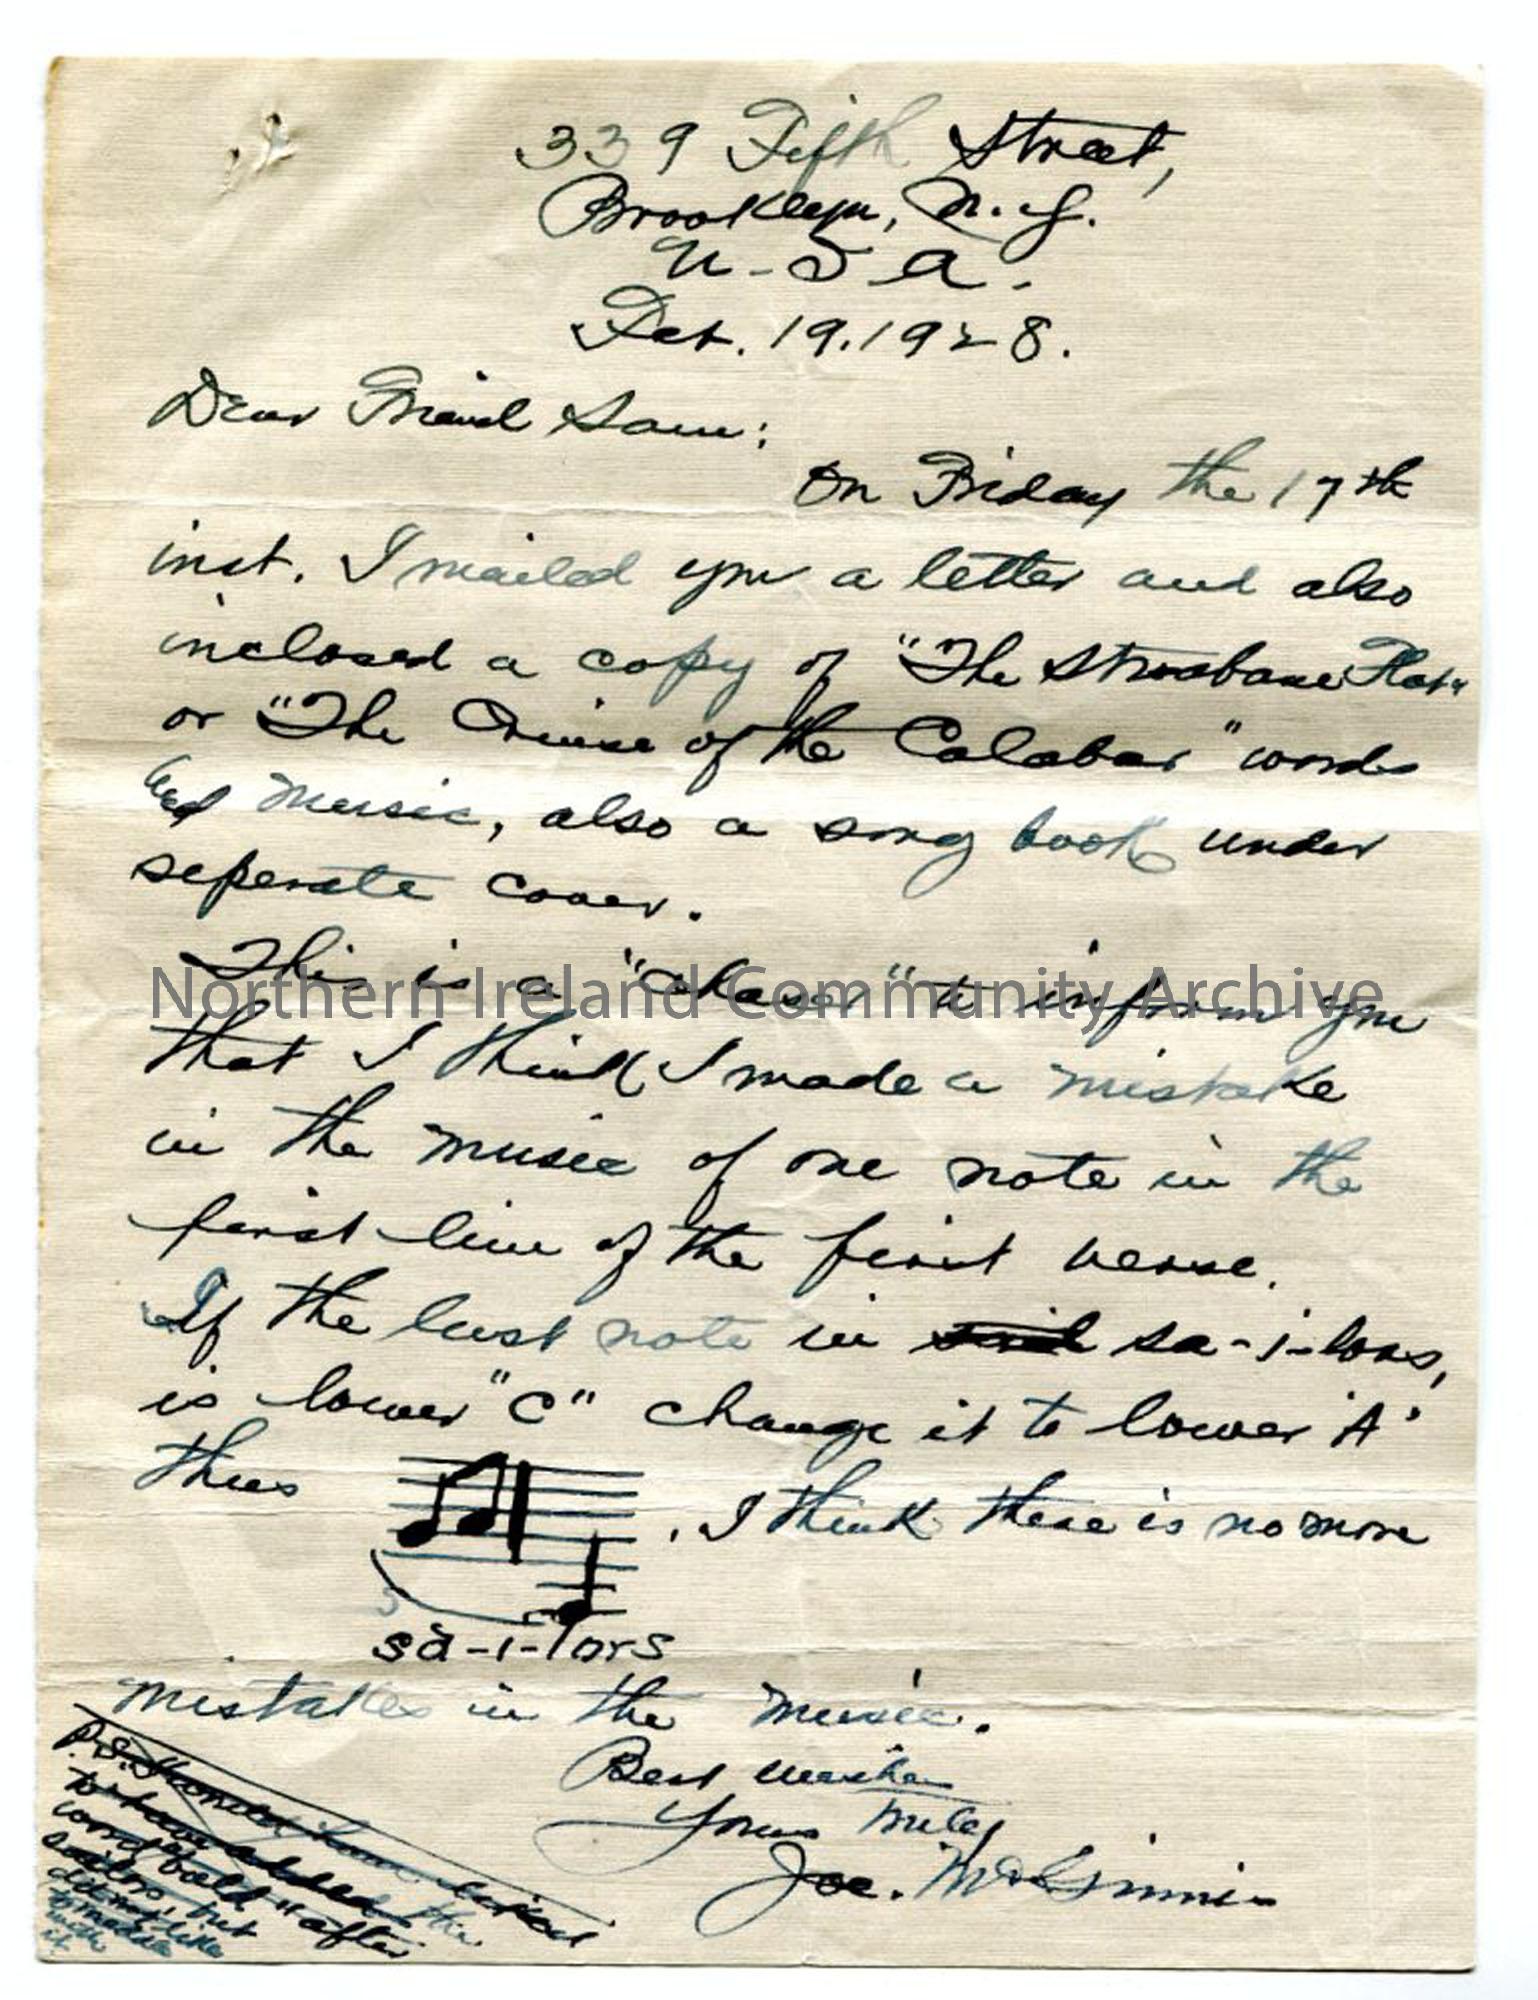 339 Fifth Street,
Brooklyn, N.Y.
U-S A.
Feb. 19.1928.
Dear Friend Sam:
On Friday the 17th
inst. I mailed you a letter and also
inclosed a copy of "The Strabane Flat"
or "The Cruise of the Calabar" words
and music, also a song book under
seperate cover.
This is a "chaser" to inform you
that I think I made a mistake
in the music of one note in the
first line of the first verse.
If the last note in sa-i-lors,
is lower "C" change it to lower 'A'
thus . I think there is no more
sa-i-lors
mistakes in the music.
Best Wishes
Yours truly
Joe. McGinnis
P.S. have liked
to have added the
word "bold" after
sailors, but
did not like
to meddle
with
it
Northern Ireland Community Archive